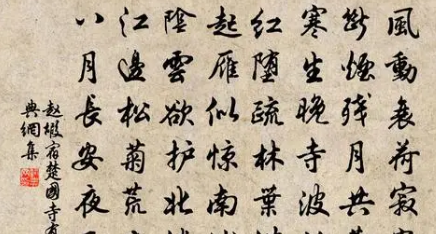 風動衰荷寂
斷煙殘月共
寒生晚寺波
紅墮疏林葉
起雁似驚南
陰雲欲护北
江邊松菊荒
八月長安夜
趙嘏宿楚國寺有
典綱集